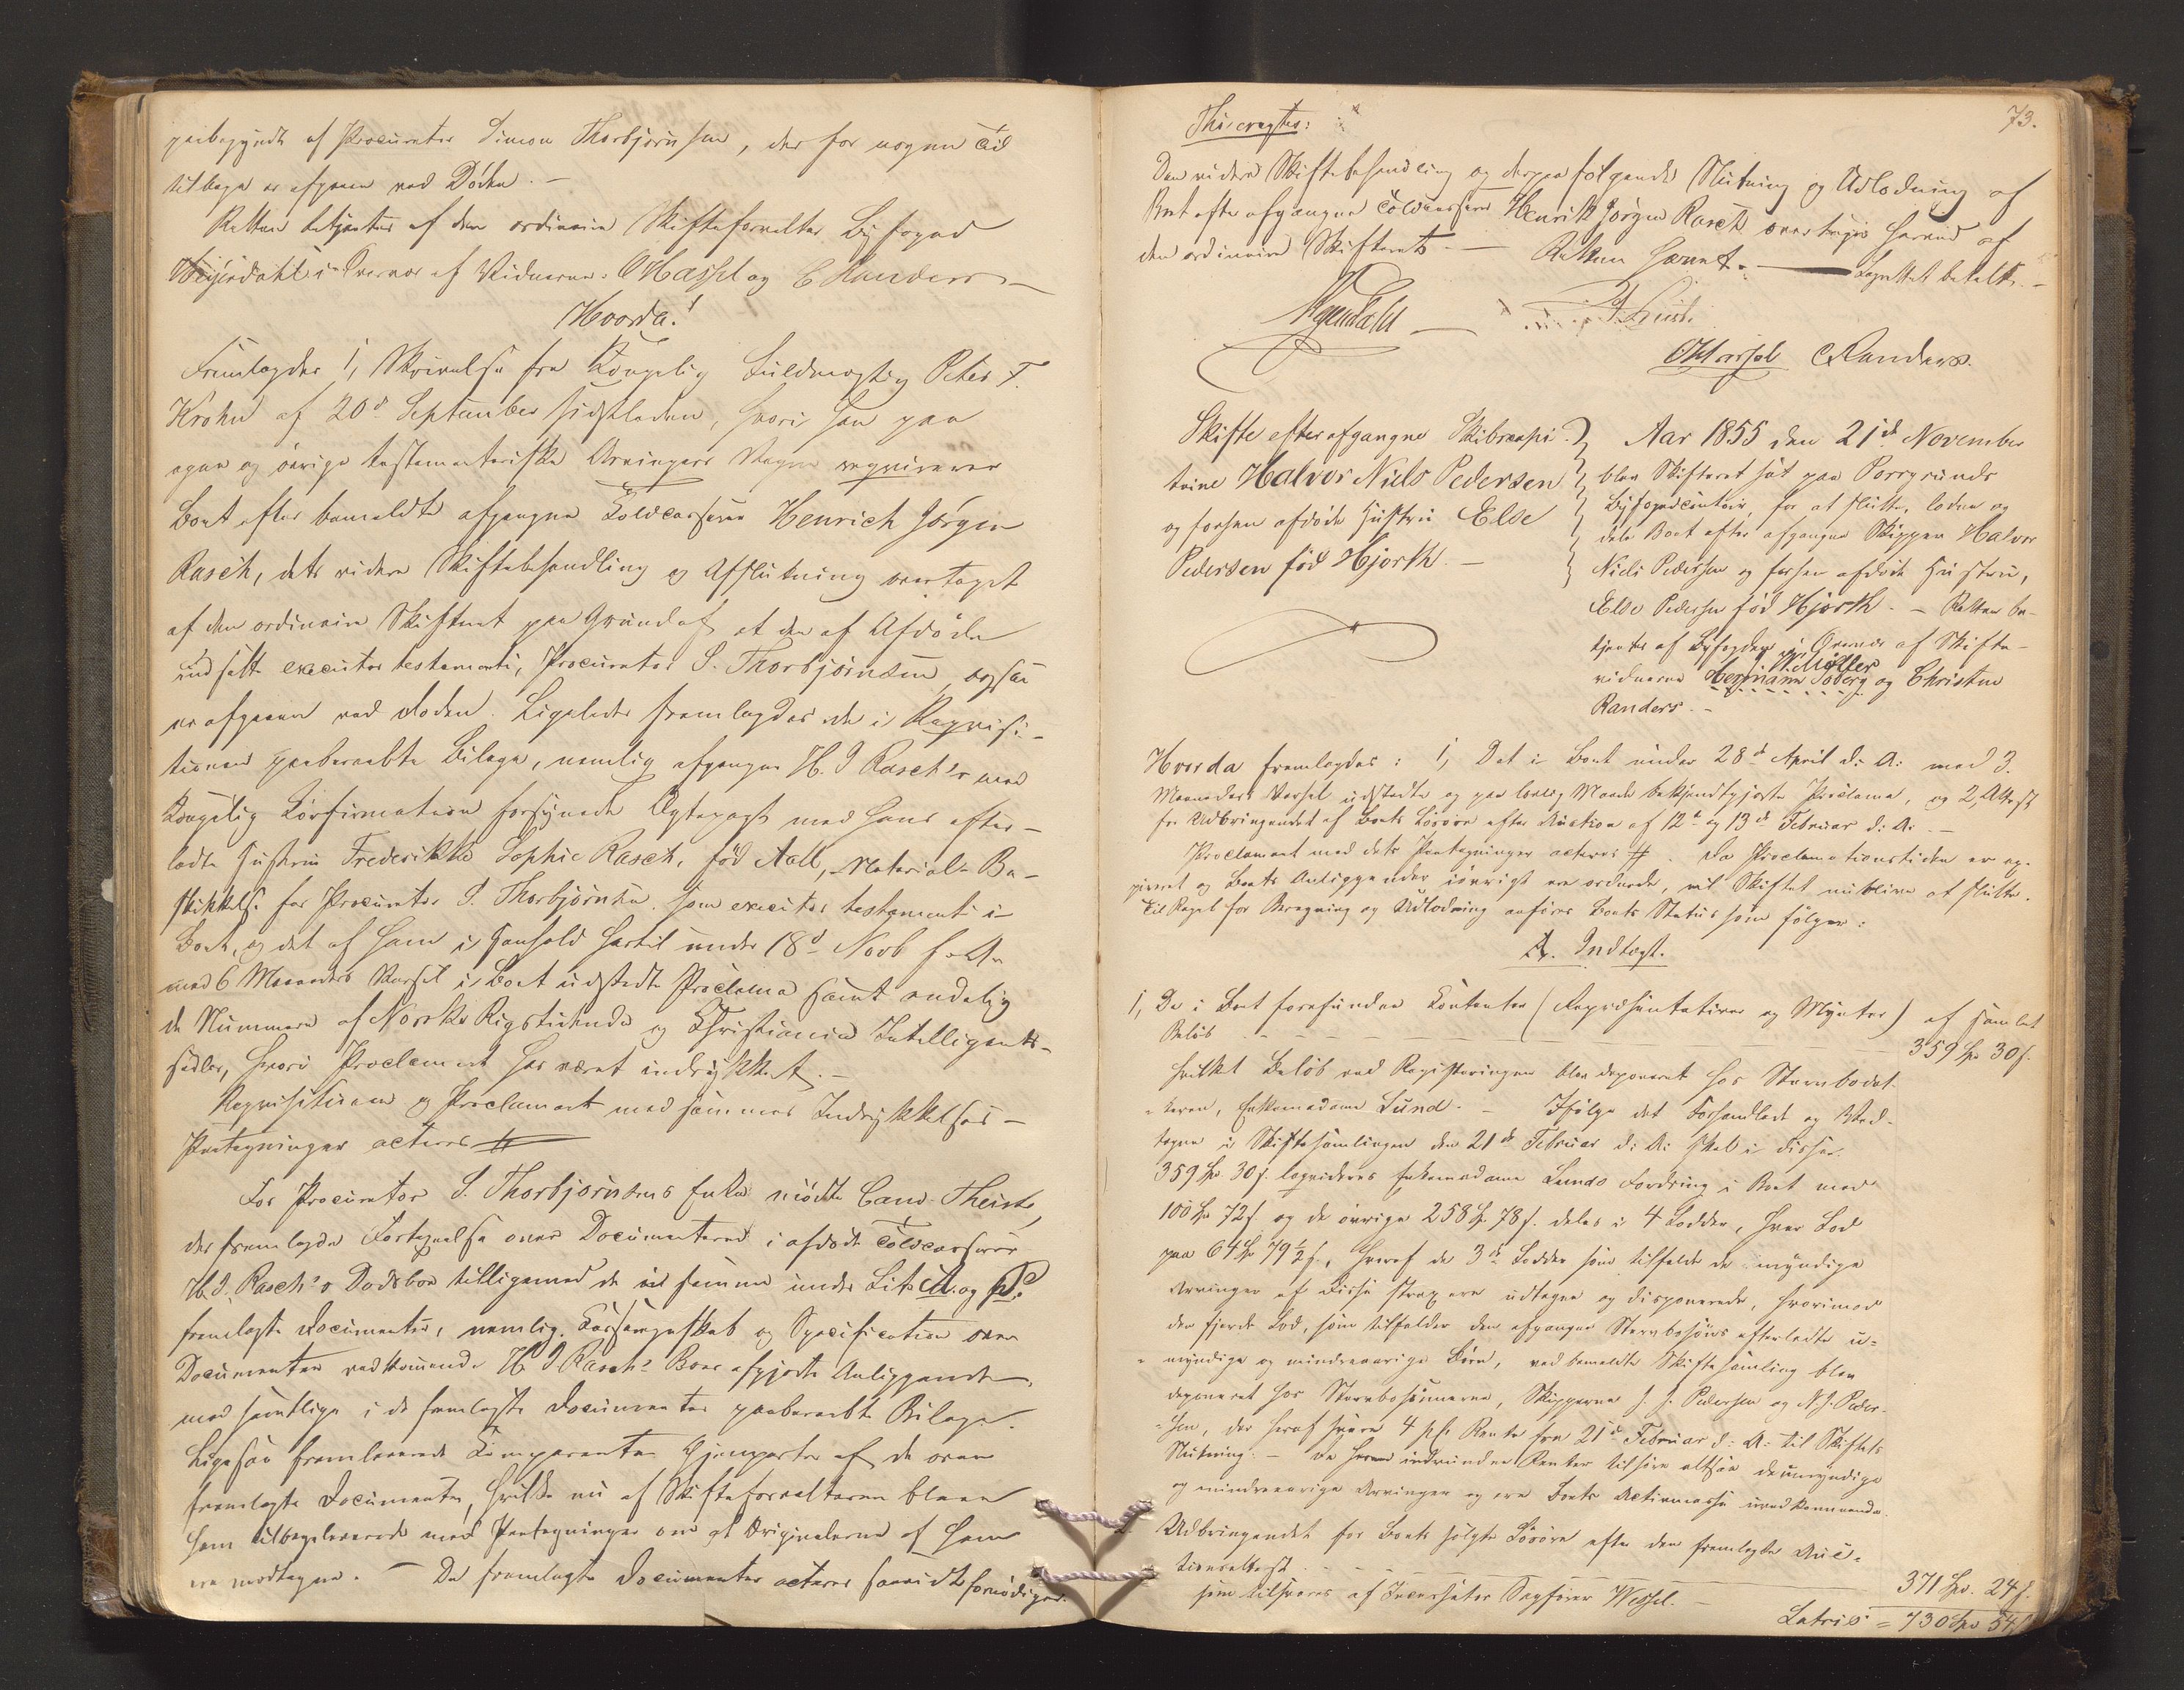 paabegyndt af Procurator Simon Thorbjørnsen, der for nogen Tid
tilbage er afgaaen ved Døden. –
Retten betjentes af den ordinaire Skifteforvalter Byfoged
Weyerdahl i Overvær af Vidnerne: O Hassel og C Randers –
Hvorda!
Fremlagdes 1, Skrivelse fra Kongelig Fuldmægtig Peter T.
Krohn af 20de September sidstleden, hvori han paa
egne og øvrige testamentariske Arvingers Vegne reqvirerer
Boet efter bemeldte afgangne Toldcasserer Henrich Jørgen
Rasch, dets videre Skiftebehandling og Afslutning overtaget
af den ordinaire Skifteret paa Grund af at den af Afdøde
indsatte executor testamenti, Procurator S. Thorbjørnsen, ogsaa
er afgaaen ved Døden. Ligeledes fremlagdes de i Reqvisi-
tionen paaberaabte Bilage, nemlig afgangne H. J Rasch's med
Kongelig Confirmation forsynede Ægtepagt med hans efter-
ladte Hustru Frederikke Sophie Rasch, fød Aall, Notorial-Be-
skikkelse for Procurator S. Thorbjørnsen som executor testamenti i
Boet, og det af ham i Henhold hertil under 18de Novb f. A.
med 6 Maaneders Varsel i Boet udstedte Proclama samt endelig
de Nummere af Norske Rigstidende og Christiania Intelligents-
sedler, hvori Proclamaet har været indrykket. –
Reqvisitionen og Proclamaet med sammes Indrykkelses-
Paategninger acteres #
For Procurator S. Thorbjørnsens Enke mødte Cand. Theiste,
der fremlagde Fortegnelse over Documenterne i afdøde Toldcasserer
H. J. Rasch's Dødsboe tilligemed de til samme under Lit. A. og B.
fremlagte Documenter, nemlig. Casseregnskab og Specification over
Documenter vedkommende H J Rasch's Boes afgjorte Anliggender,
med samtlige i de fremlagte Documenter paaberaabte Bilage.
Ligesaa fremleverede Comparenten Gjenparter af de oven
fremlagte Documenter, hvilke nu af Skifteforvalteren bleve
ham tilbageleverede med Paategninger om at Originalerne af ham
ere modtagne. – De fremlagte Documenter acteres saavidt fornødiges.
73.
Thi eragtes:
Den videre Skiftebehandling og derpaa følgende Slutning og Udlodning af
Boet efter afgangne Toldcasserer Henrik Jørgen Rasch overtages herved af
den ordinaire Skifteret. – Retten hævet. – Laugrettet betalt. –
Weyerdahl – Theiste
O Hassel C Randers.
Skifte efter afgangne Skibscapi-
taine Halvor Niels Pedersen
og forhen afdøde Hustru Else
Pedersen fød Hjorth. –
Aar 1855 den 21de November
blev Skifteret sat paa Porsgrunds
Byfogedcontoir, for at slutte, lodne og
dele Boet efter afgangne Skipper Halvor
Niels Pedersen og forhen afdøde Hustru,
Else Pedersen fød Hjorth. – Retten be-
tjentes af Byfogden i Overvær af Skifte-
W. Møller
vidnerne Hermann Soberg og Christen
Randers. –
Hvorda fremlagdes: 1, Det i Boet under 28de April d: A: med 3.
Maaneders Varsel udstedte og paa lovlig Maade bekjendtgjorte Proclama, og 2, Attest
for Udbringendet af Boets Løsøre efter Auction af 12te og 13de Februar d: A: –
Proclamaet med dets Paategninger acteres #. Da Proclamationstiden er ex-
pireret og Boets Anliggender iøvrigt ere ordnede, vil Skiftet nu blive at slutte.
Til Regel for Beregning og Udlodning anføres Boets Status som følger:
A. Indtægt.
1, De i Boet forefundne Contanter (Repræsentativer og Mynter) af samlet
Beløb – – – 359 Spd 30 s.
hvilket Beløb ved Registeringen blev deponeret hos Stervbodat-
teren, Enkemadame Lund. – Ifølge det Forhandlede og Ved-
tagne i Skiftesamlingen den 21de Februar d: A: skal i disse
359 Spd 30 s. liqvideres Enkemadame Lunds Fordring i Boet med
100 Spd 72 s og de øvrige 258 Spd 78 s. deles i 4 Lodder, hver Lod
paa 64 Spd 79½ s., hvoraf de 3de Lodder som tilfaldt de myndige
Arvinger af disse strax ere udtagne og disponerede, hvorimod
den fjerde Lod, som tilfalder den afgangne Stervbosøns efterladte u-
myndige og mindreaarige Børn, ved bemeldte Skiftesamling blev
deponeret hos Stervbosønnerne, Skipperne J. J. Pedersen og N. J. Peder-
sen, der heraf svare 4 pCt. Rente fra 21de Februar d: A: til Skiftets
Slutning. – De herved indvundne Renter tilhøre altsaa de umyndige
og mindreaarige Arvinger og ere Boets Activmasse uvedkommende.
2 Udbringendet for Boets solgte Løsøre efter den fremlagte Auc-
tionsattest – – –
som tilsvares af Incassator Sagfører Wessel. – 371 Spd. 24 s.
Latris = 730 Spd 54 s